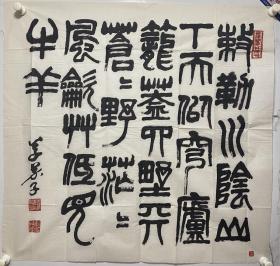 敕勒川陰山
下天佀穹廬
籠蓋四野天
蒼〻野茫〻
風龡艸低見
牛羊